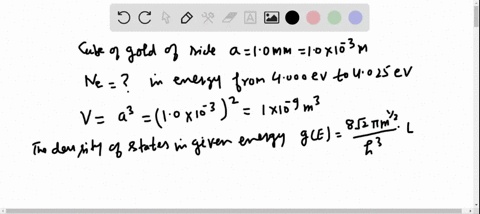 Cube of gold of side a = 1.0mm = 1.0×10⁻³ M
Ne = ? in energy from 4.000 eV to 4.025 eV
V = a³ = (1.0×10⁻³)² = 1×10⁻⁹ m³
The density of states in given energy g(E) = 8√2 πm^{3/2}/h³ · L